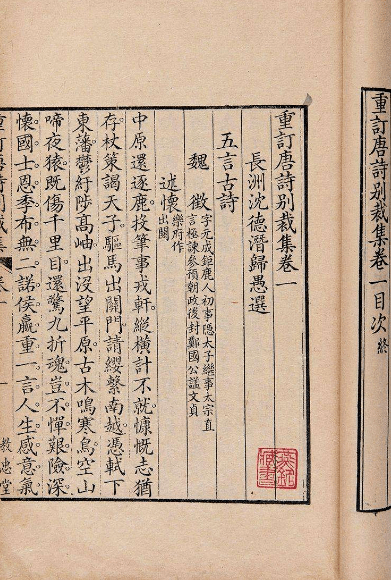 重訂唐詩別裁集卷一目次終
重訂唐詩別裁集卷一
長洲沈德潛歸愚選
五言古詩
魏徵 字元成鉅鹿人初事隱太子繼事太宗直
言極諫參預朝政後封鄭國公諡文貞
述懷 樂府作
出關
中原還逐鹿投筆事戎軒縱橫計不就慷慨志猶
存杖策謁天子驅馬出關門請纓繫南越憑軾下
東藩鬱紆陟高岫出沒望平原古木鳴寒鳥空山
啼夜猿既傷千里目還驚九折魂豈不憚艱險深
懷國士恩季布無二諾侯嬴重一言人生感意氣
重訂唐詩別裁集 卷一 一 教忠堂